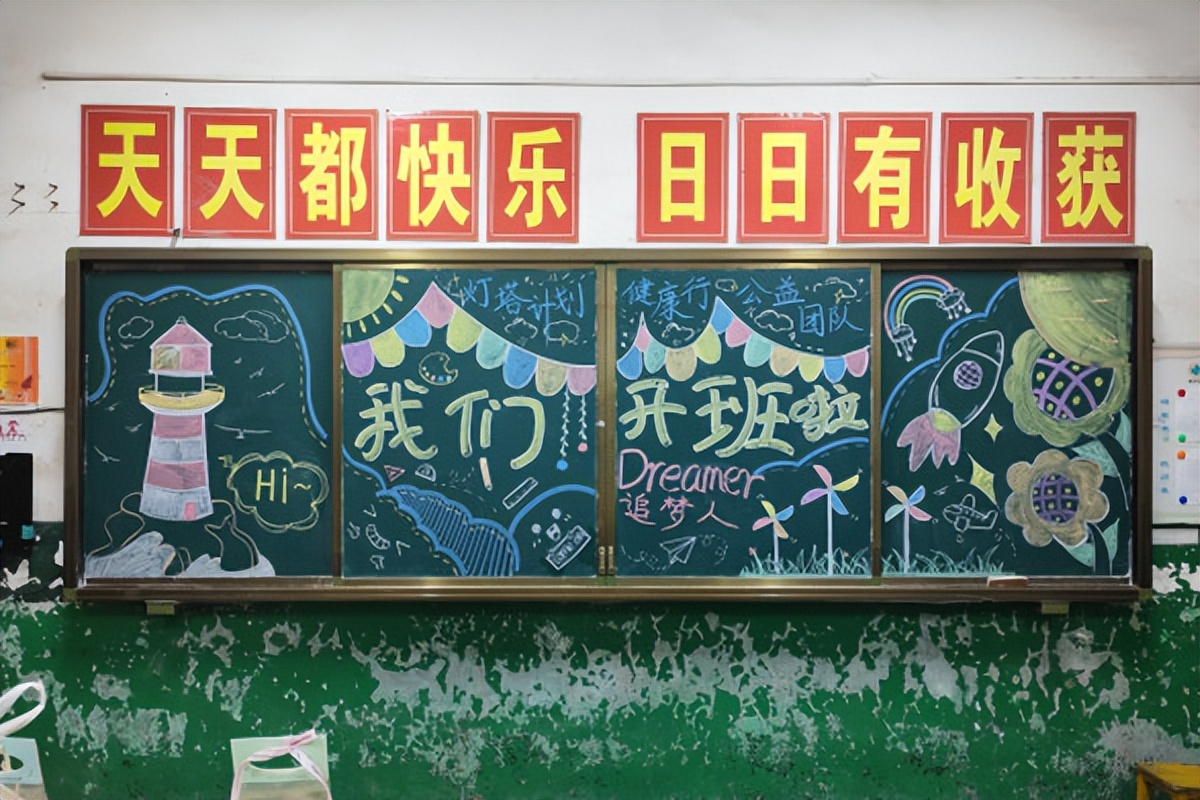 天天都快乐 日日有收获
灯塔计划
健康行 公益
团队
我们
开班啦
Hi~
Dreamer
追梦人